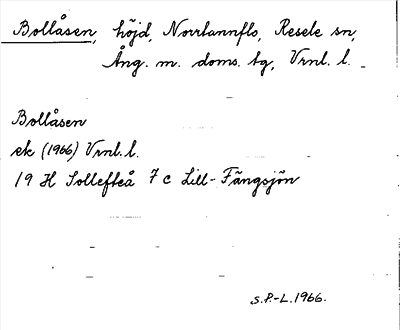 Bollåsen, höjd, Norrtannflo, Resele sn,
Ång. m. doms. tg, Vrnl. l.
Bollåsen
ek (1966) Vrnl. l.
19 H Sollefteå 7 c Lill-Fängsjön
S.P.-L. 1966.